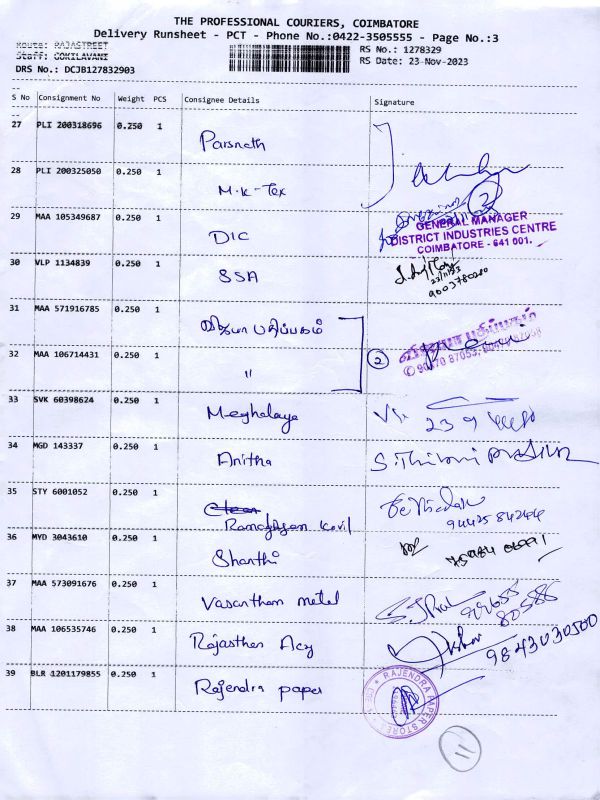 THE PROFESSIONAL COURIERS, COIMBATORE
Delivery Runsheet - PCT - Phone No.:0422-3505555 - Page No.:3
Route: RAJASTREET
Staff: GOKILAVANI
RS No.: 1278329
DRS No.: DCJB127832903
RS Date: 23-Nov-2023
S No Consignment No Weight PCS Consignee Details Signature
27 PLI 200318696 0.250 1 Parsnath
28 PLI 200325050 0.250 1 M.K-Tex
2
29 MAA 105349687 0.250 1 DIC
GENERAL MANAGER
DISTRICT INDUSTRIES CENTRE
COIMBATORE - 641 001.
30 VLP 1134839 0.250 1 SSA
31 MAA 571916785 0.250 1 விஜயா பதிப்பகம்
விஜயா பதிப்பகம்
32 MAA 106714431 0.250 1 "
2
33 SVK 60398624 0.250 1 Meghalaya
34 MGD 143337 0.250 1 Anitha
35 STY 6001052 0.250 1 Kovil
94425 84244
36 MYD 3043610 0.250 1 Shanthi
37 MAA 573091676 0.250 1 Vasantham metal
38 MAA 106535746 0.250 1 Rajasthan Acy
9843030500
39 BLR 1201179855 0.250 1 Rajendra paper
RAJENDRA PAPER STORES
11